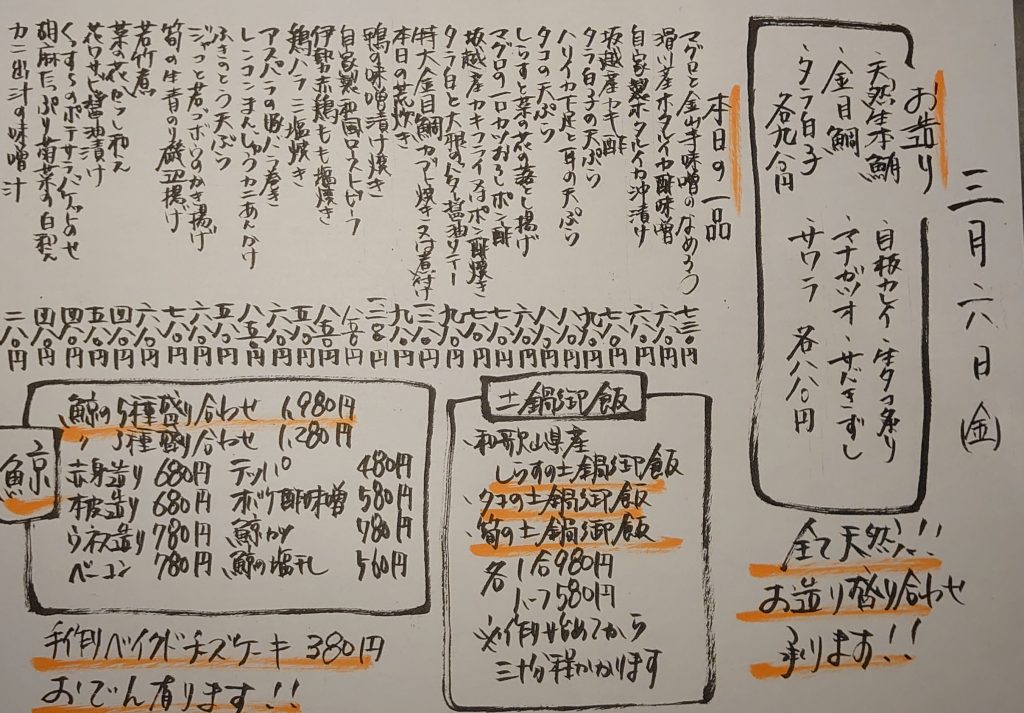 三月六日(金)
お造り
・天然生本鮪
・金目鯛
・タラ白子
各九八〇円
・目板カレイ・生タコ炙り
・マナガツオ・サバきずし
・サワラ
各八八〇円
全て天然!!
お造り盛り合わせ
承ります!!
本日の一品
マグロと金山寺味噌のなめろう 七三〇円
滑川産ホタルイカ酢味噌 六八〇円
自家製ホタルイカ沖漬け 六八〇円
坂越産カキ酢 七八〇円
タラ白子の天ぷら 九八〇円
ハリイカ下足と耳の天ぷら 六八〇円
タコの天ぷら 八八〇円
しらすと菜の花の落とし揚げ 七八〇円
マグロの一口カツおろしポン酢 七八〇円
坂越産カキフライ又はポン酢焼き 九八〇円
タラ白子と大根のバター醤油ソテー
特大金目鯛カブト焼き又は煮付け
本日の荒炊き 九八〇円
鴨の味噌漬け焼き
自家製和風ローストビーフ
伊勢赤鶏もも塩焼き 八五〇円
鶏ハラミ塩焼き 六八〇円
アスパラの豚バラ巻き
レンコンまんじゅうカニあんかけ 八五〇円
ふきのとう天ぷら 五八〇円
ジャコと若ゴボウのかき揚げ 六八〇円
筍の生青のり磯辺揚げ 七八〇円
若竹煮 六八〇円
菜の花からし和え 四八〇円
花ワサビ醤油漬け 五八〇円
くっすらのポテサラバケットのせ 四八〇円
胡麻たっぷり菊菜の白和え 四八〇円
カニ出汁の味噌汁 二八〇円
土鍋御飯
・和歌山県産
しらすの土鍋御飯
・タコの土鍋御飯
・筍の土鍋御飯
各1合980円
1.5〃1,580円
※作り始めてから
三十分程かかります
鯨
鯨の5種盛り合わせ 1,980円
〃3種盛り合わせ 1,280円
赤身造り 680円 テッパ 480円
本皮造り 680円 オバケ酢味噌 580円
ウネス造り 780円 鯨カツ 780円
ベーコン 780円 鯨の塩干し 560円
手作りベイクドチーズケーキ 380円
おでん有ります!!